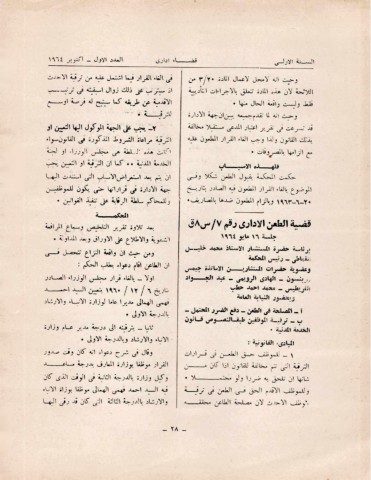 السنة الاولى
قضاء ادارى
العدد الاول - اكتوبر ١٩٦٤
وحيث انه لامحل لاعمال المادة ٣/٢٠ من
اللائحة لأن هذه المادة تتعلق بالاجراءات التأديبية
وليست واقعة الحال منها .
وحيث انه لما تقدم جميعه يبين ان جهة الادارة
قد تسرعت فى تقرير اعتبار المدعى مستقيلا مخالفة
بذلك القانون ولذا وجب الغاء القرار المطعون فيه
مع الزامها بالمصروفات .
فلهذه الاسباب
حكمت المحكمة بقبول الطعن شكلا وفى
الموضوع بالغاء القرار المطعون فيه الصادر بتاريخ
٢٠-٦-١٩٦٣ وبالزام المطعون ضدها بالمصاريف .
قضية الطعن الادارى رقم ٧/س٨ق
جلسة ١٦ مايو ١٩٦٤
برئاسة حضرة المستشار الاستاذ محمد خليل
رئيس المحكمة
وعضوية حضرات المستشارين الاساتذة
الهادى عبد الجواد
محمد احمد
وبحضور النيابة العامة
أ - المصلحة فى الطعن - دفع الضرر المحتمل .
ب - ترقية الموظفين طبقا لنصوص قانون
الخدمة المدنية .
المبادىء القانونية :
١ - للموظف حق الطعن فى قرارات
الترقية التى تتم مخالفة للقانون اذا كان من
شأنها ان تلحق به ضررا ولو محتملا .
وللموظف الاقدم حق الطعن فى ترقية
الموظف الاحدث لان مصلحة الطاعن محققة
فى الغاء القرار فيما اشتمل عليه من ترقية الاحدث
اذ سيترتب على ذلك زوال اسبقيته فى ترتيب
الاقدمية عن طريقه كما ستتيح له فرصة اوسع
للترقية .
٢ - يجب على الجهة الموكول اليها التعيين او
الترقية مراعاة الشروط المذكورة فى القانون سواء
كانت هذه السلطة هى مجلس الوزراء او لجنة
الخدمة المدنية .. كما ان الترقية او التعيين يجب
ان يتم بعد استعراض الاسباب التى استندت اليها
جهة الادارة فى قراراتها حتى يكون للموظفين
وللمحاكم سلطة الرقابة على تنفيذ القوانين .
المحكمة
بعد تلاوة تقرير التلخيص وسماع المرافعة
الشفوية والاطلاع على الاوراق وبعد المداولة .
ومن حيث ان واقعة النزاع تتحصل فى
ان الطاعن اقام دعواه بطلب الحكم :
اولا - بالغاء قرار مجلس الوزراء الصادر
بتاريخ ٦/١٢/١٩٦٠ بتعيين السيد احمد
فهمى الهمالى مديرا عاما لوزارة الانباء والارشاد
بالدرجة الاولى .
ثانيا - بترقيته الى درجة مدير عام وزارة
الانباء والارشاد بالدرجة الاولى .
وقال فى شرح دعواه انه كان وقت صدور
القرار موظفا بوزارة المعارف بدرجة مساعد
وكيل وزارة بالدرجة الثانية فى الوقت الذى كان
فيه السيد احمد فهمى الهمالى موظفا بوزارة الانباء
والارشاد بالدرجة الثالثة التى كان قد رقى اليها
- ٢٨ -